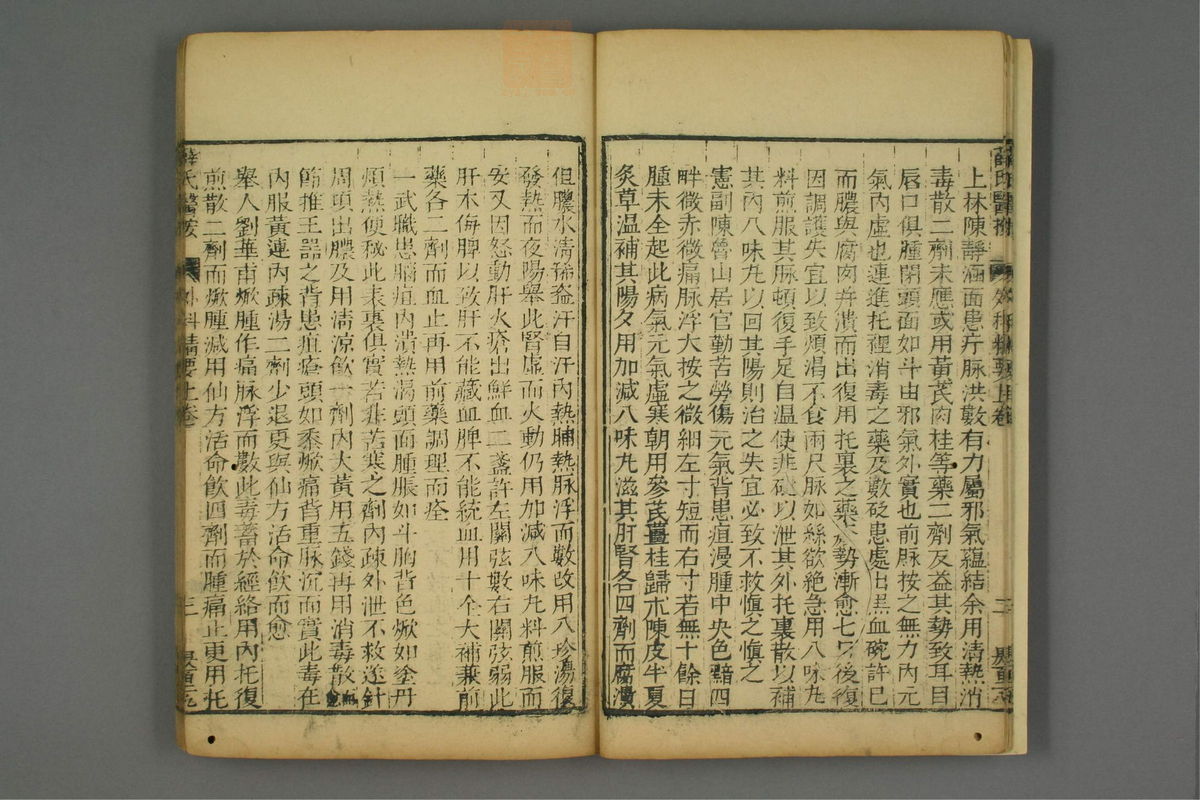 上林陳靜涵面患疔脉洪數有力屬邪氣蘊結余用清熱消
毒散二劑未應或用黃芪肉桂等藥二劑反益其勢致耳目
唇口俱腫閉頭面如斗由邪氣外實也前脉按之無力內元
氣內虛也連進托裡消毒之藥及數砭患處出黑血碗許已
而膿與腐肉并潰而出復用托裏之藥 勢漸愈七日後復
因調護失宜以致煩渴不食兩尺脉如絲欲絶急用八味丸
料煎服其脉頓復手足自温使非砭以泄其外托裏散以補
其內八味丸以回其陽則治之失宜必致不救慎之慎之
憲副陳魯山居官勤苦勞傷元氣背患疽漫腫中央色黯四
畔微赤微痛脉浮大按之微細左寸短而右寸若無十餘日
腫未全起此病氣元氣虛寒朝用參芪薑桂歸朮陳皮半夏
炙草温補其陽夕用加減八味丸滋其肝腎各四劑而腐潰
但膿水清稀盗汗自汗內熱晡熱脉浮而數改用八珍湯復
發熱而夜陽舉此腎虛而火動仍用加減八味丸料煎服而
安又因怒動肝火瘡出鮮血二盞許左關弦數右關弦弱此
肝木侮脾以致肝不能藏血脾不能統血用十全大補兼前
藥各二劑而血止再用前藥調理而痊
一武職患腦疽內潰熱渴頭面腫脹如斗胸背色焮如塗丹
煩熱便秘此表裏俱實若非苦寒之劑內疎外泄不救遂針
周頭出膿及用清涼飲一劑內大黃用五錢再用消毒散
節推王器之背患疽瘡頭如黍焮痛背重脉沉而實此毒在
內服黃連內疎湯二劑少退更與仙方活命飲而愈
舉人劉華甫焮腫作痛脉浮而數此毒蓄於經絡用內托復
煎散二劑而焮腫減用仙方活命飲四劑而腫痛止更用托
薛氏醫按
外科精要上卷
三